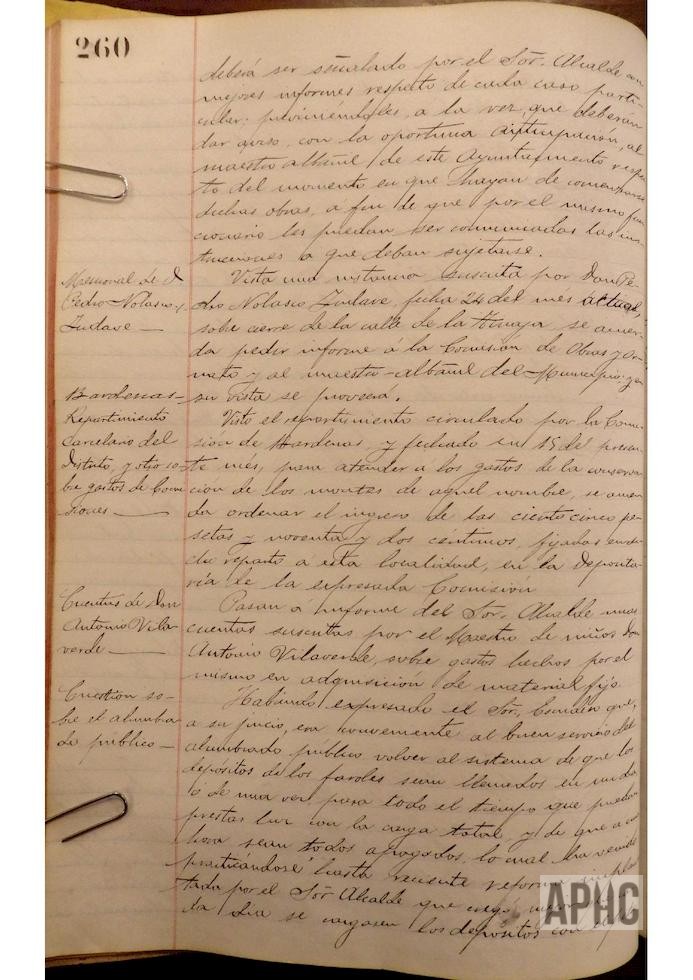 260
deberá ser señalado por el Sõr. Alcalde con
mejores informes respeto de cada caso parti-
cular; previniéndoles, a la vez, que deberán
dar aviso, con la oportuna anticipación, al
maestro albañil de este Ayuntamiento respe
to del momento en que hayan de comenzarse
dichas obras, a fin de que por el mismo fun
cionario les puedan ser comunicadas las ins
trucciones a que deban sujetarse.
Memorial de D
Pedro Nolasco y
Zuctave
Vista una instancia suscrita por Don Pe
dro Nolasco, fecha 24 del més actual,
sobre cierre de la calle de la se acuer
da pedir informe á la Comisión de Obras y Or
nato y al maestro-albañil del Municipio y en
su vista se proveerá.
Bardenas-
Repartimiento
Carcelario del
Distrito, y otro so-
bre gastos de Comi
siones
Visto el repartimiento circulado por la Comi
sión de Bardenas y fechado en 15 del presen
te més, para atender a los gastos de la conserva
ción de los montes de aquel nombre, se acuer
da ordenar el ingreso de las ciento cinco pe
setas y noventa y dos céntimos, fijadas en
dicho reparto a esta localidad, en la Deposita
ría de la expresada Comisión
Cuentas de Don
Antonio Vila-
verde
Pasan a informe del Sor. Alcalde unas
cuentas suscritas por el Maestro de niños Don
Antonio Vilaverde, sobre gastos hechos por el
mismo en adquisición de material fijo
Cuestion so-
bre el alumbra
do público
Habiendo expresado el Sor. que,
a su juicio, era conveniente al buen servicio del
alumbrado público volver al sistema de que los
depósitos de los faroles sean llenados en un dia
o de una vez para todo el tiempo que puedan
prestar luz con la carga total, y de que a una
hora sean todos apagados, lo cual ha venido
practicándose hasta reciente reforma
tada por el Sõr Alcalde que creyó
da dia se cargasen los depósitos con
APHC